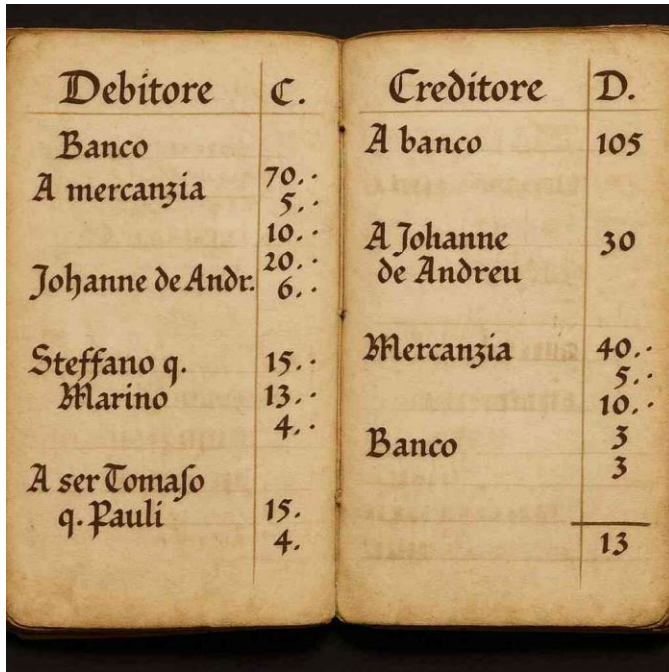 Debitore C.
Banco
A mercanzia 70..
5..
10..
20..
Johanne de Andr. 6..
Steffano q. 15..
Marino 13..
4..
A ser Tomaſo
q. Pauli 15.
4.
Creditore D.
A banco 105
A Johanne 30
de Andreu
Mercanzia 40..
5..
10..
Banco 3
3
13